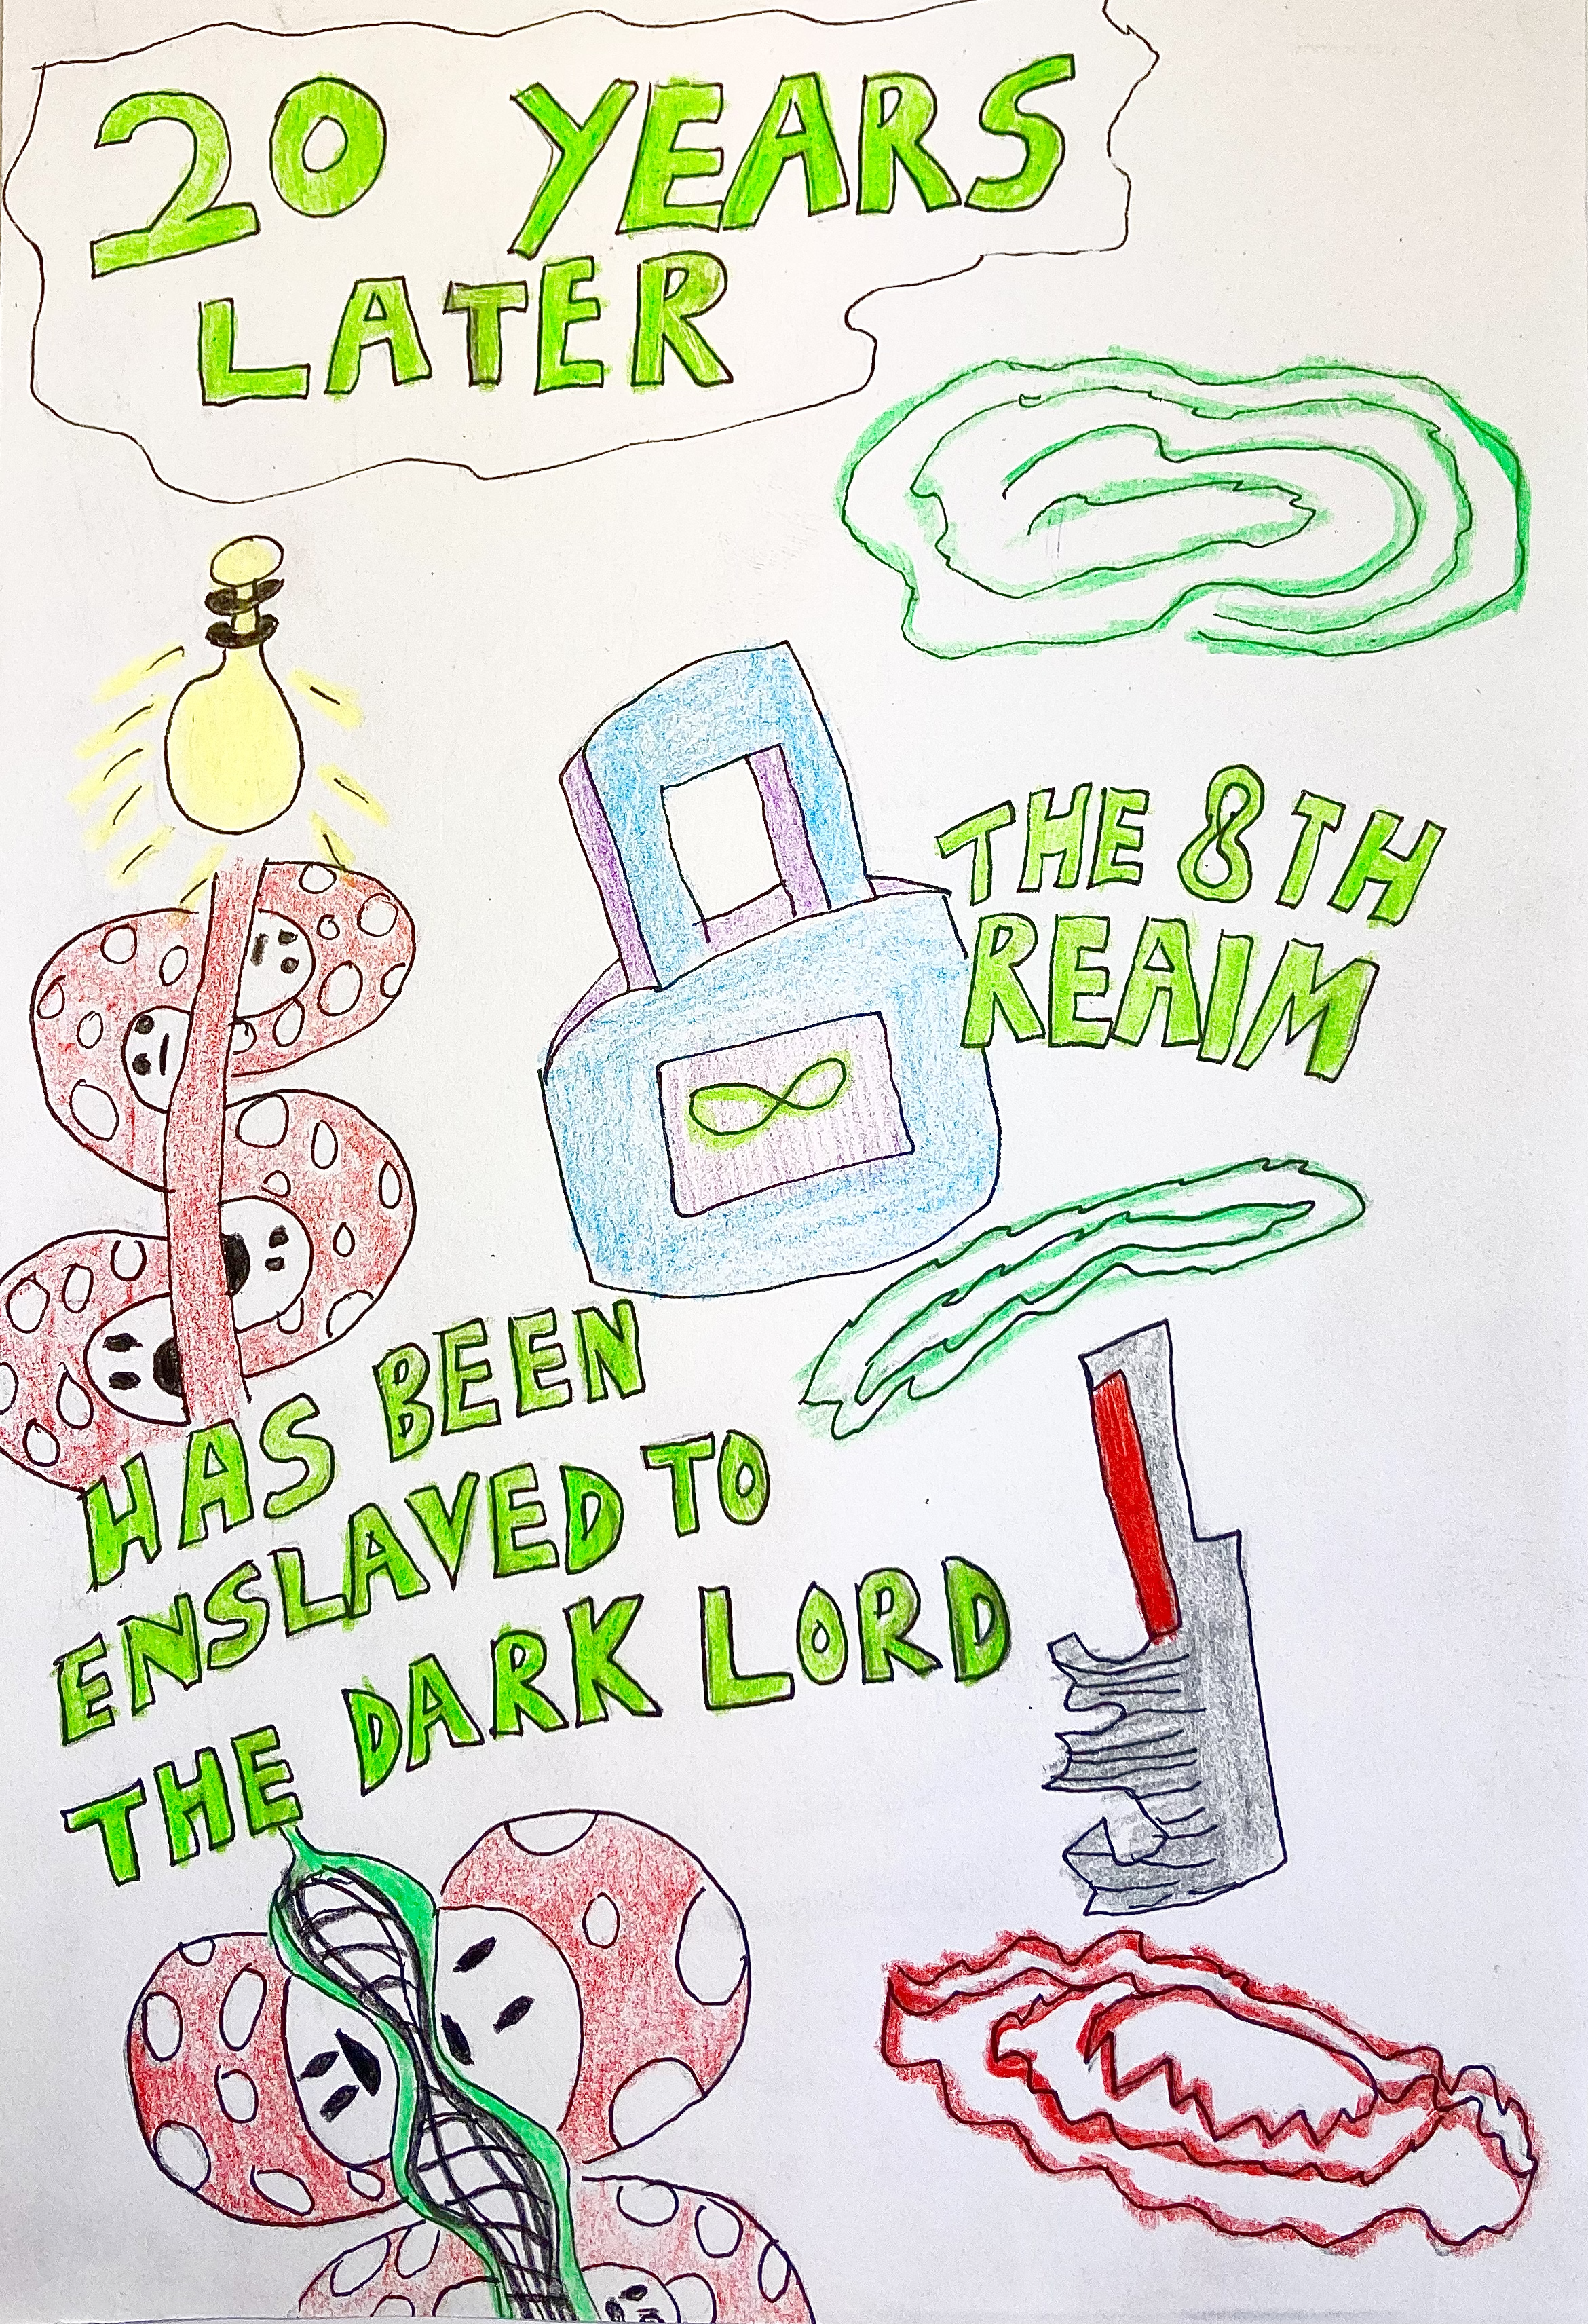 20 YEARS
LATER
THE 8TH
REAIM
HAS BEEN
ENSLAVED TO
THE DARK LORD